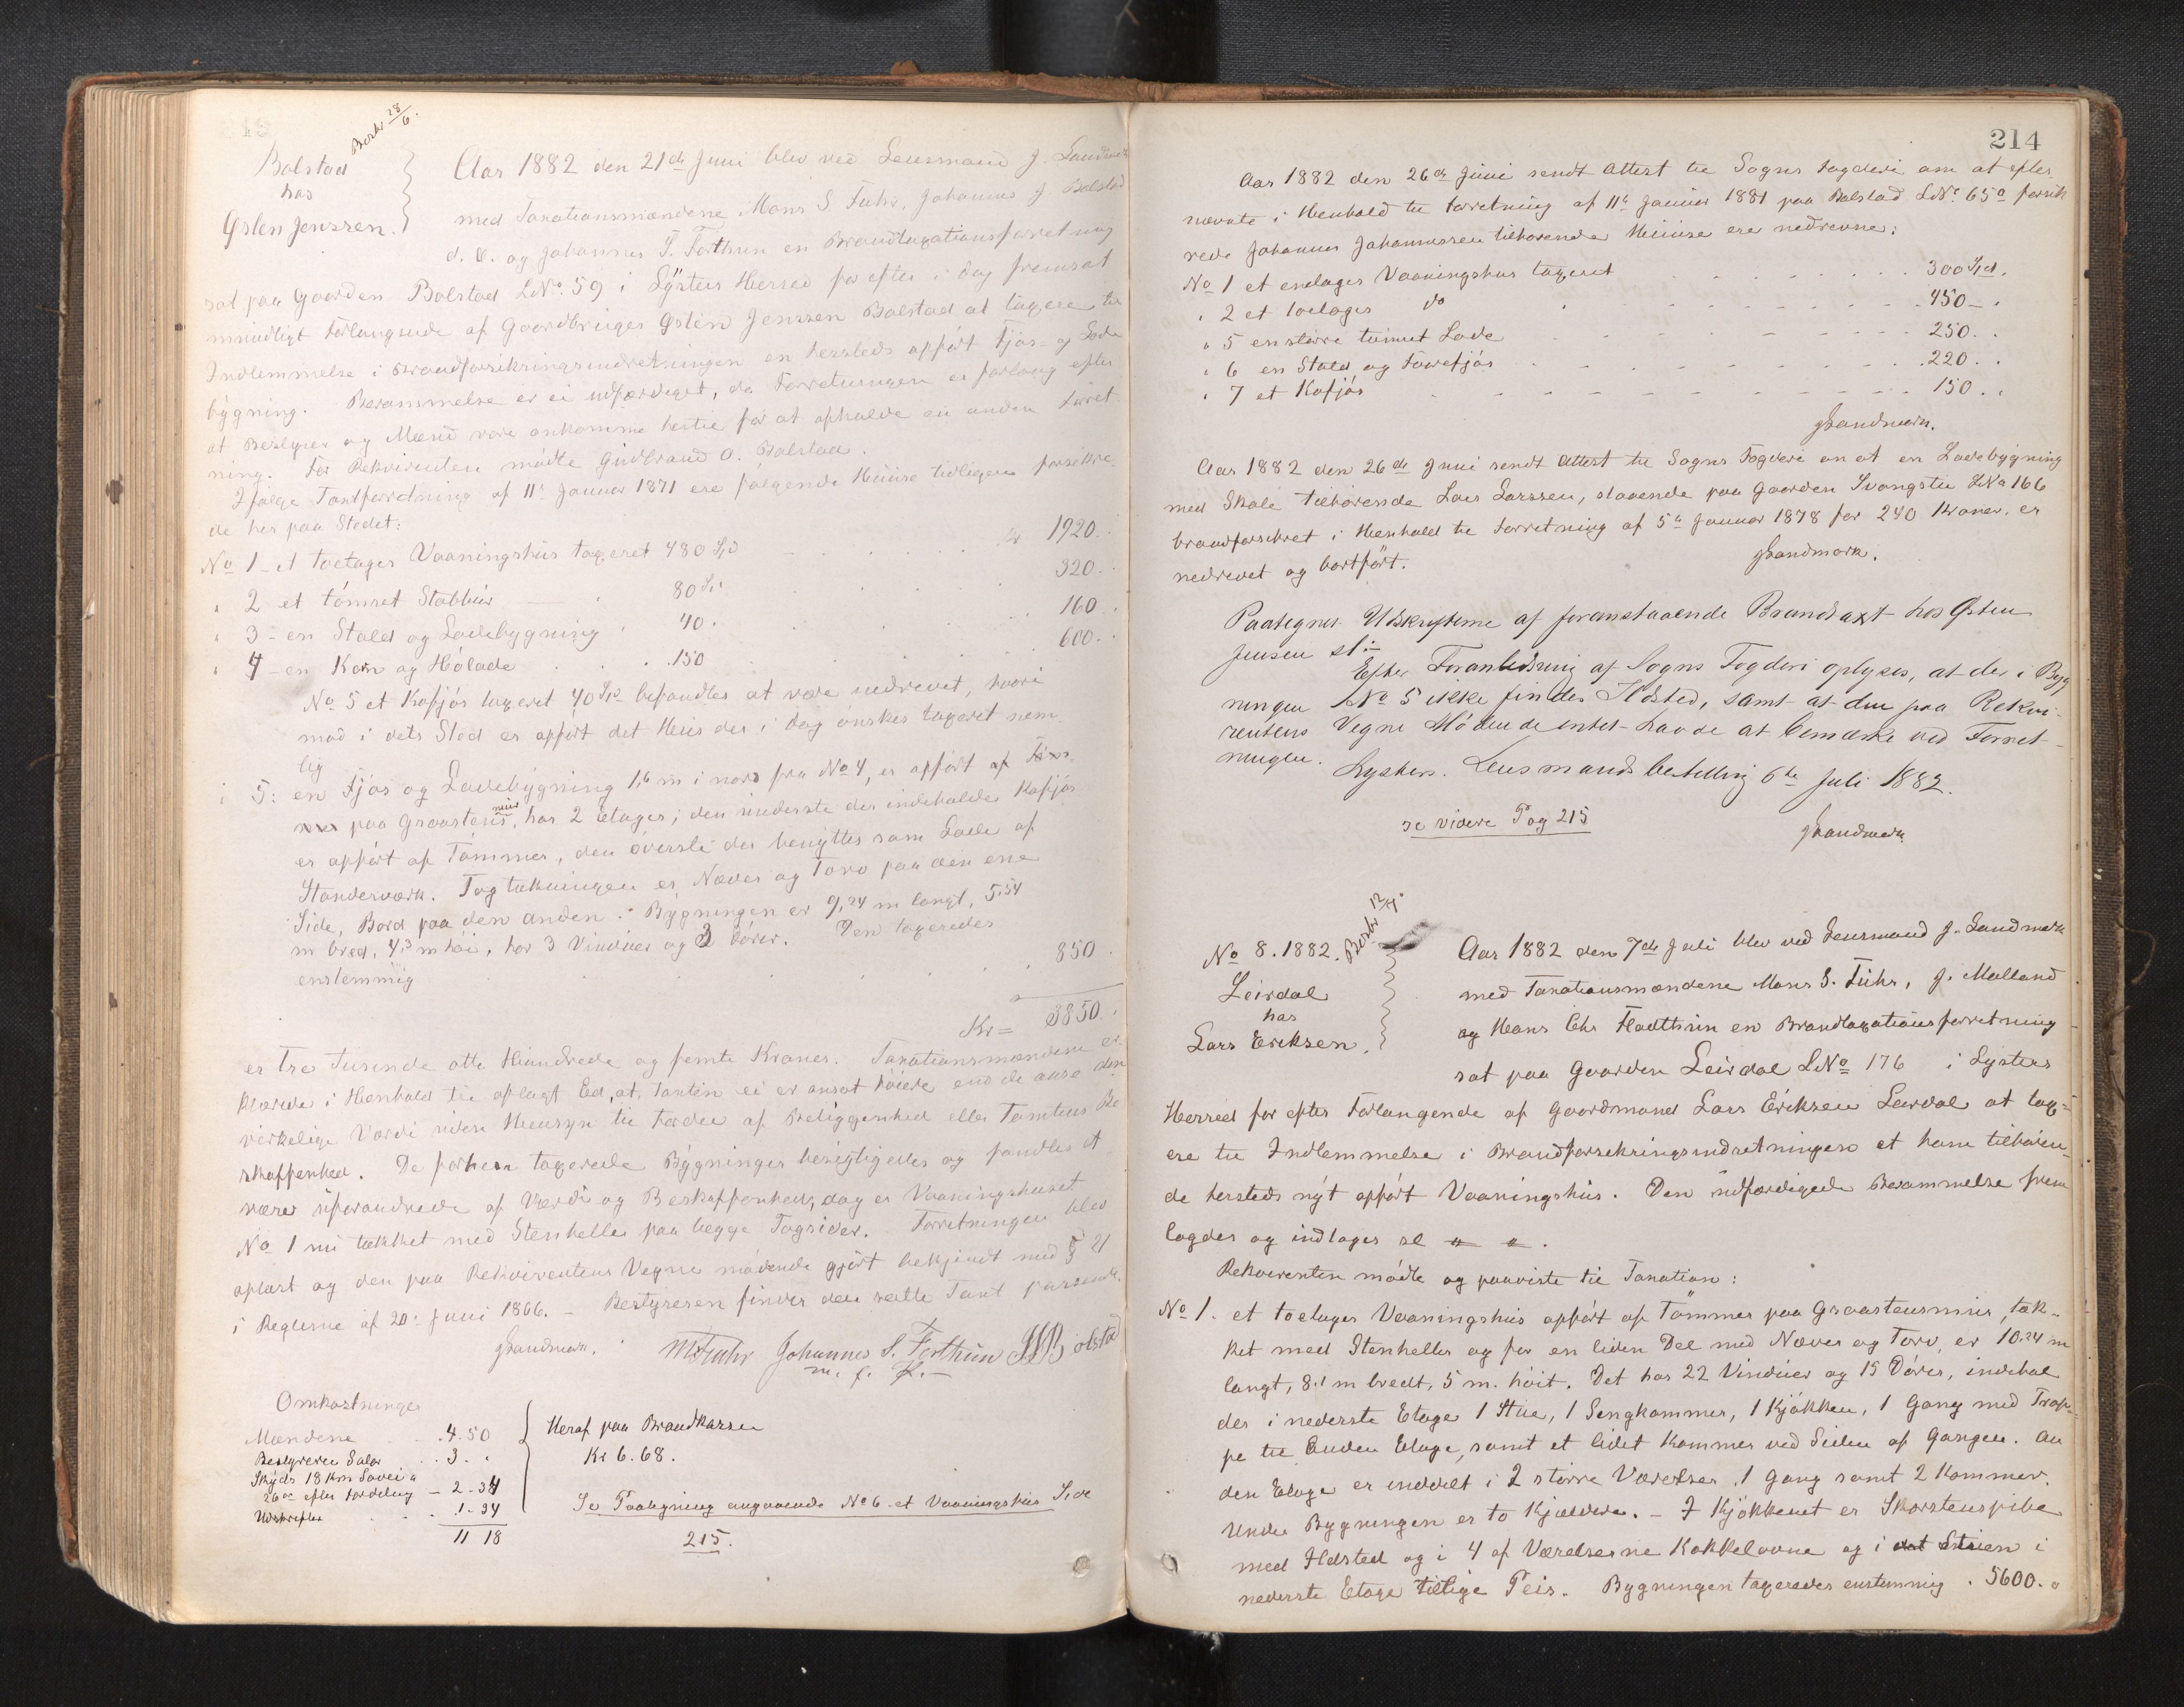 Besk 28/6.
Bolstad
hos
Østen Jenssen.
Aar 1882 den 21de Juni blev ved Lensmand J. Landmark
med Taxationsmændene Mons S Fuhr, Johannes J Bolstad
d. æ. og Johannes S. Forthun en Brandtaxationsforretning
sat paa Gaarden Bolstad LNo. 59 i Lysters Herred for efter i Dag fremsat
mundligt Forlangende af Gaardbruger Østen Jenssen Bolstad at taxere til
Indlemmelse i Brandforsikringsindretningen en hersteds opført Fjøs- og Lade
bygning. Berammelse er ei udfærdiget, da Forretningen er forlangt efter
at Bestyrer og Mænd vare ankomne hertil for at afholde en anden Forret
ning. For Rekvirenten mødte Gudbrand O. Bolstad.
Ifølge Taxtforretning af 11te Januar 1871 ere følgende Huuse tidligere forsikre
de her paa Stedet:
No 1 - et toetages Vaaningshus taxeret 480 Spd Kr 1920.
" 2 et tømret Stabbur 80 Spd 320.
" 3 - en Stald og Ladebygning 40. 160
" 4 - en Korn og Hølade 150 600.
No 5 et Kofjøs taxeret 40 Spd befandtes at være nedrevet, hvori
mod i dets Sted er opført det Huus der i Dag ønskes taxeret nem
lig
5: en Fjøs og Ladebygning 1,6 m i nord fra No 4, er opført af
paa Graastensmuur, har 2 Etager; den nederste der indeholder Kofjøs
er opført af Tømmer, den øverste der benyttes som Lade af
Standerværk. Tagtækningen er Næver og Torv paa den ene
Side, Bord paa den anden. Bygningen er 9,24 m langt, 5,54
m bred, 4,3 m høi, har 3 Vinduer og 3 Dører. Den taxeredes
enstemmig 850
Kr = 3850.
er Tre Tusinde otte Hundrede og femti Kroner. Taxationsmændene er
klærede i Henhold til aflagt Ed, at Taxten ei er ansat høiere end de anse den
virkelige Værdi uden Hensyn til Fordele af Beliggenhed eller Tomtens Be
skaffenhed. De forhen taxerede Bygninger besigtigedes og fandtes at
være uforandrede af Værdi og Beskaffenhed, dog er Vaaningshuset
No 1 nu tækket med Stenheller paa begge Tagsider. Forretningen blev
oplæst og den paa Rekvirentens Vegne mødende gjort bekjendt med § 21
i Reglerne af 20de Juni 1866. - Bestyreren finder den satte Taxt passende.
JLandmark. MSFuhr Johannes S. Forthun JJBolstad
m. f. P.
Omkostninger
Mændene 4.50
Bestyreren Salær 3. "
Skyds 18 Km Søvei a
26øre efter Fordeling - 2-34
Udskrifter 1-34
11 18
Heraf paa Brandkassen
Kr 6.68.
Se Paategning angaaende No 6 et Vaaningshus Side
215.
214
Aar 1882 den 26de Juni sendt Attest til Sogns Fogderi om at efter
nævnte i Henhold til Forretning af 11te Januar 1881 paa Bolstad LNo. 65a forsik
rede Johannes Johannessen tilhørende Huuse ere nedrevne:
No 1 et enetages Vaaningshus taxeret 300 Spd.
" 2 et toetages do 450 - .
" 5 en større tømret Lade 250. .
" 6 en Stald og Faarefjøs 220. .
" 7 et Kofjøs 150. .
JLandmark.
Aar 1882 den 26de Juni sendt Attest til Sogns Fogderi om at en Ladebygning
med Skale tilhørende Lars Larssen, staaende paa Gaarden Svangstu LNo 166
brandforsikret i Henhold til Forretning af 5te Januar 1878 for 240 Kroner. er
nedrevet og bortført. JLandmark.
Paategnet Udskrifterne af foranstaaende Brandtaxt hos Østen
Jensen sl:
Efter Foranledning af Sogns Fogderi oplyses, at der i Byg
ningen No 5 ikke findes Ildsted, samt at den paa Rekvi-
rentens Vegne Mødende intet havde at bemærke ved Forret-
ningen.
Lysters Lensmandsbestilling 6te Juli 1882.
se videre Pag 215 JLandmark
No 8. 1882. Beskr 12/7.
Leirdal
hos
Lars Eriksen.
Aar 1882 den 7de Juli blev ved Lensmand J. Landmark
med Taxationsmændene Mons S. Fuhr, J. Molland
og Hans Chr Flatthun en Brandtaxationsforretning
sat paa Gaarden Leirdal LNo 176 i Lysters
Herred for efter Forlangende af Gaardmand Lars Eriksen Leirdal at tax-
ere til Indlemmelse i Brandforsikringsindretningen et ham tilhøren-
de hersteds nyt opført Vaaningshus. Den udfærdigede Berammelse frem
lagdes og indtages sl " " .
Rekvirenten mødte og paaviste til Taxation:
No 1. et toetages Vaaningshus opført af Tømmer paa Graastensmur, tæk-
ket med Stenheller og for en liden Del med Næver og Torv, er 10.24 m
langt, 8.1 m bredt, 5 m. høit. Det har 22 Vinduer og 15 Dører, indehol
der i nederste Etage 1 Stue, 1 Sengkammer, 1 Kjøkken, 1 Gang med Trap-
pe til Anden Etage, samt et lidet Kammer ved Siden af Gangen. An
den Etage er inddelt i 2 større Værelser, 1 Gang samt 2 Kammer.
Under Bygningen er to Kjældere. - I Kjøkkenet er Skorstenspibe
med Ildsted og i 4 af Værelserne Kakkelovne og i Stuen i
nederste Etage tillige Peis. Bygningen taxeredes enstemmig . 5600. "